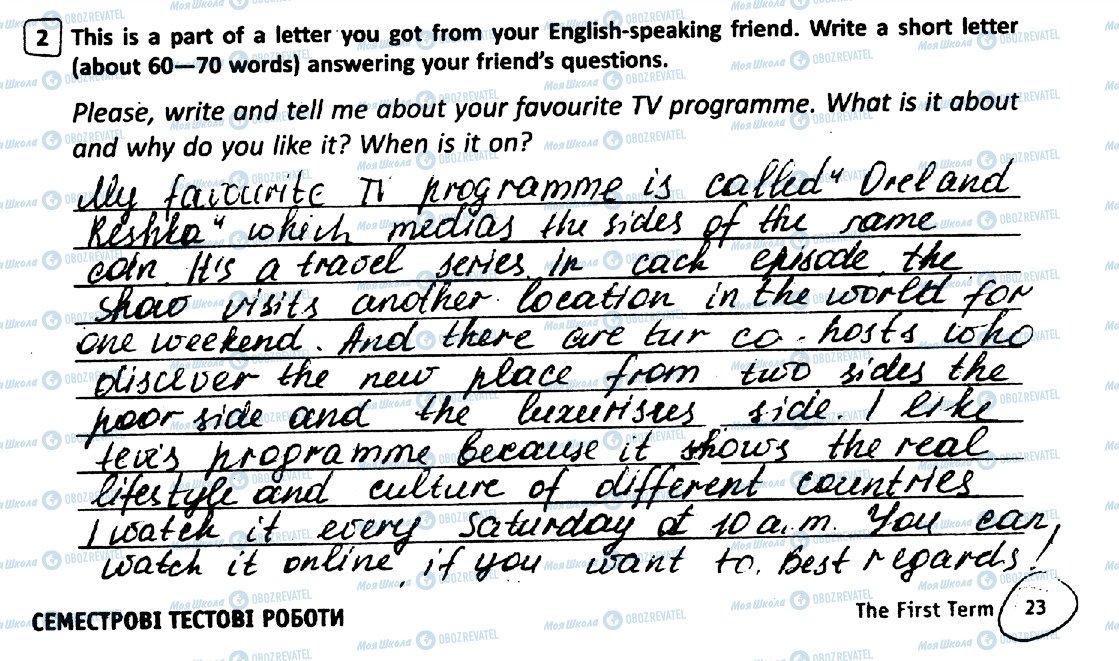 2 This is a part of a letter you got from your English-speaking friend. Write a short letter
(about 60—70 words) answering your friend's questions.
Please, write and tell me about your favourite TV programme. What is it about
and why do you like it? When is it on?
My favourite TV programme is called "Orel and
Reshka" which medias the sides of the same
coin. It's a travel series. In each episode, the
show visits another location in the world for
one weekend. And there are co-hosts who
disclver the new place from two sides the
poor side and the side. I like
programme because it shows the real
lifestyle and culture of different countries
I watch it every Saturday at 10 a.m. You can,
watch it online, if you want to. Best regards!
СЕМЕСТРОВІ ТЕСТОВІ РОБОТИ
The First Term 23
МояШкола OBOZREVATEL